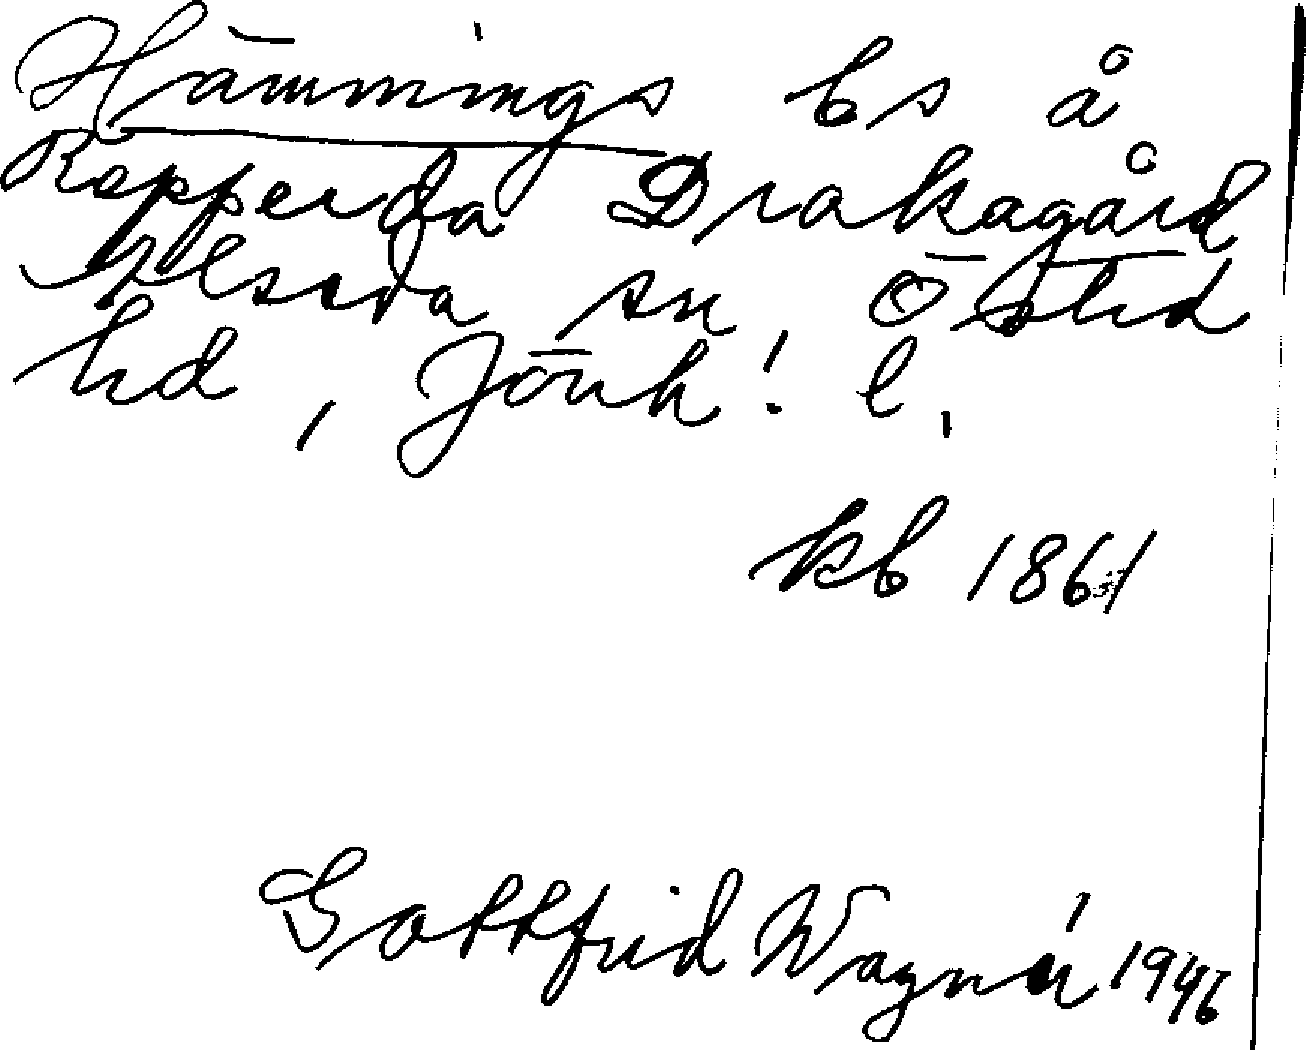 Hämmings bs å
Repperda Drakagård
Alseda sn, Östra
hd, Jönk! l.
kb 1861
Gottfrid Wagnér 1946